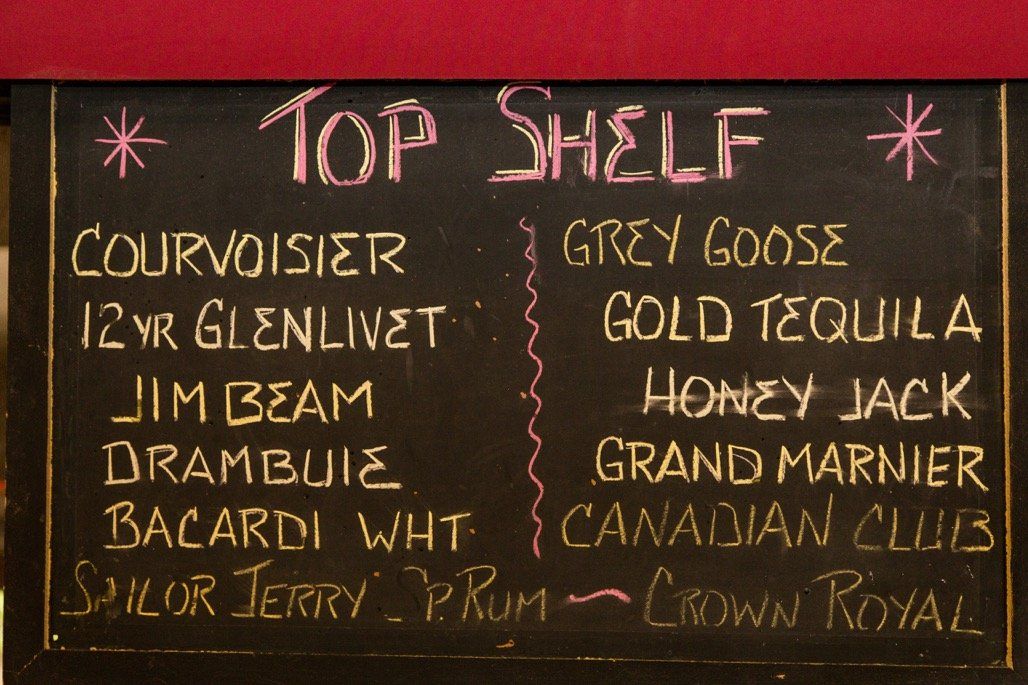 TOP SHELF
COURVOISIER
12YR GLENLIVET
JIM BEAM
DRAMBUIE
BACARDI WHT
GREY GOOSE
GOLD TEQUILA
HONEY JACK
GRAND MARNIER
CANADIAN CLUB
SAILOR JERRY SP. RUM ~ CROWN ROYAL